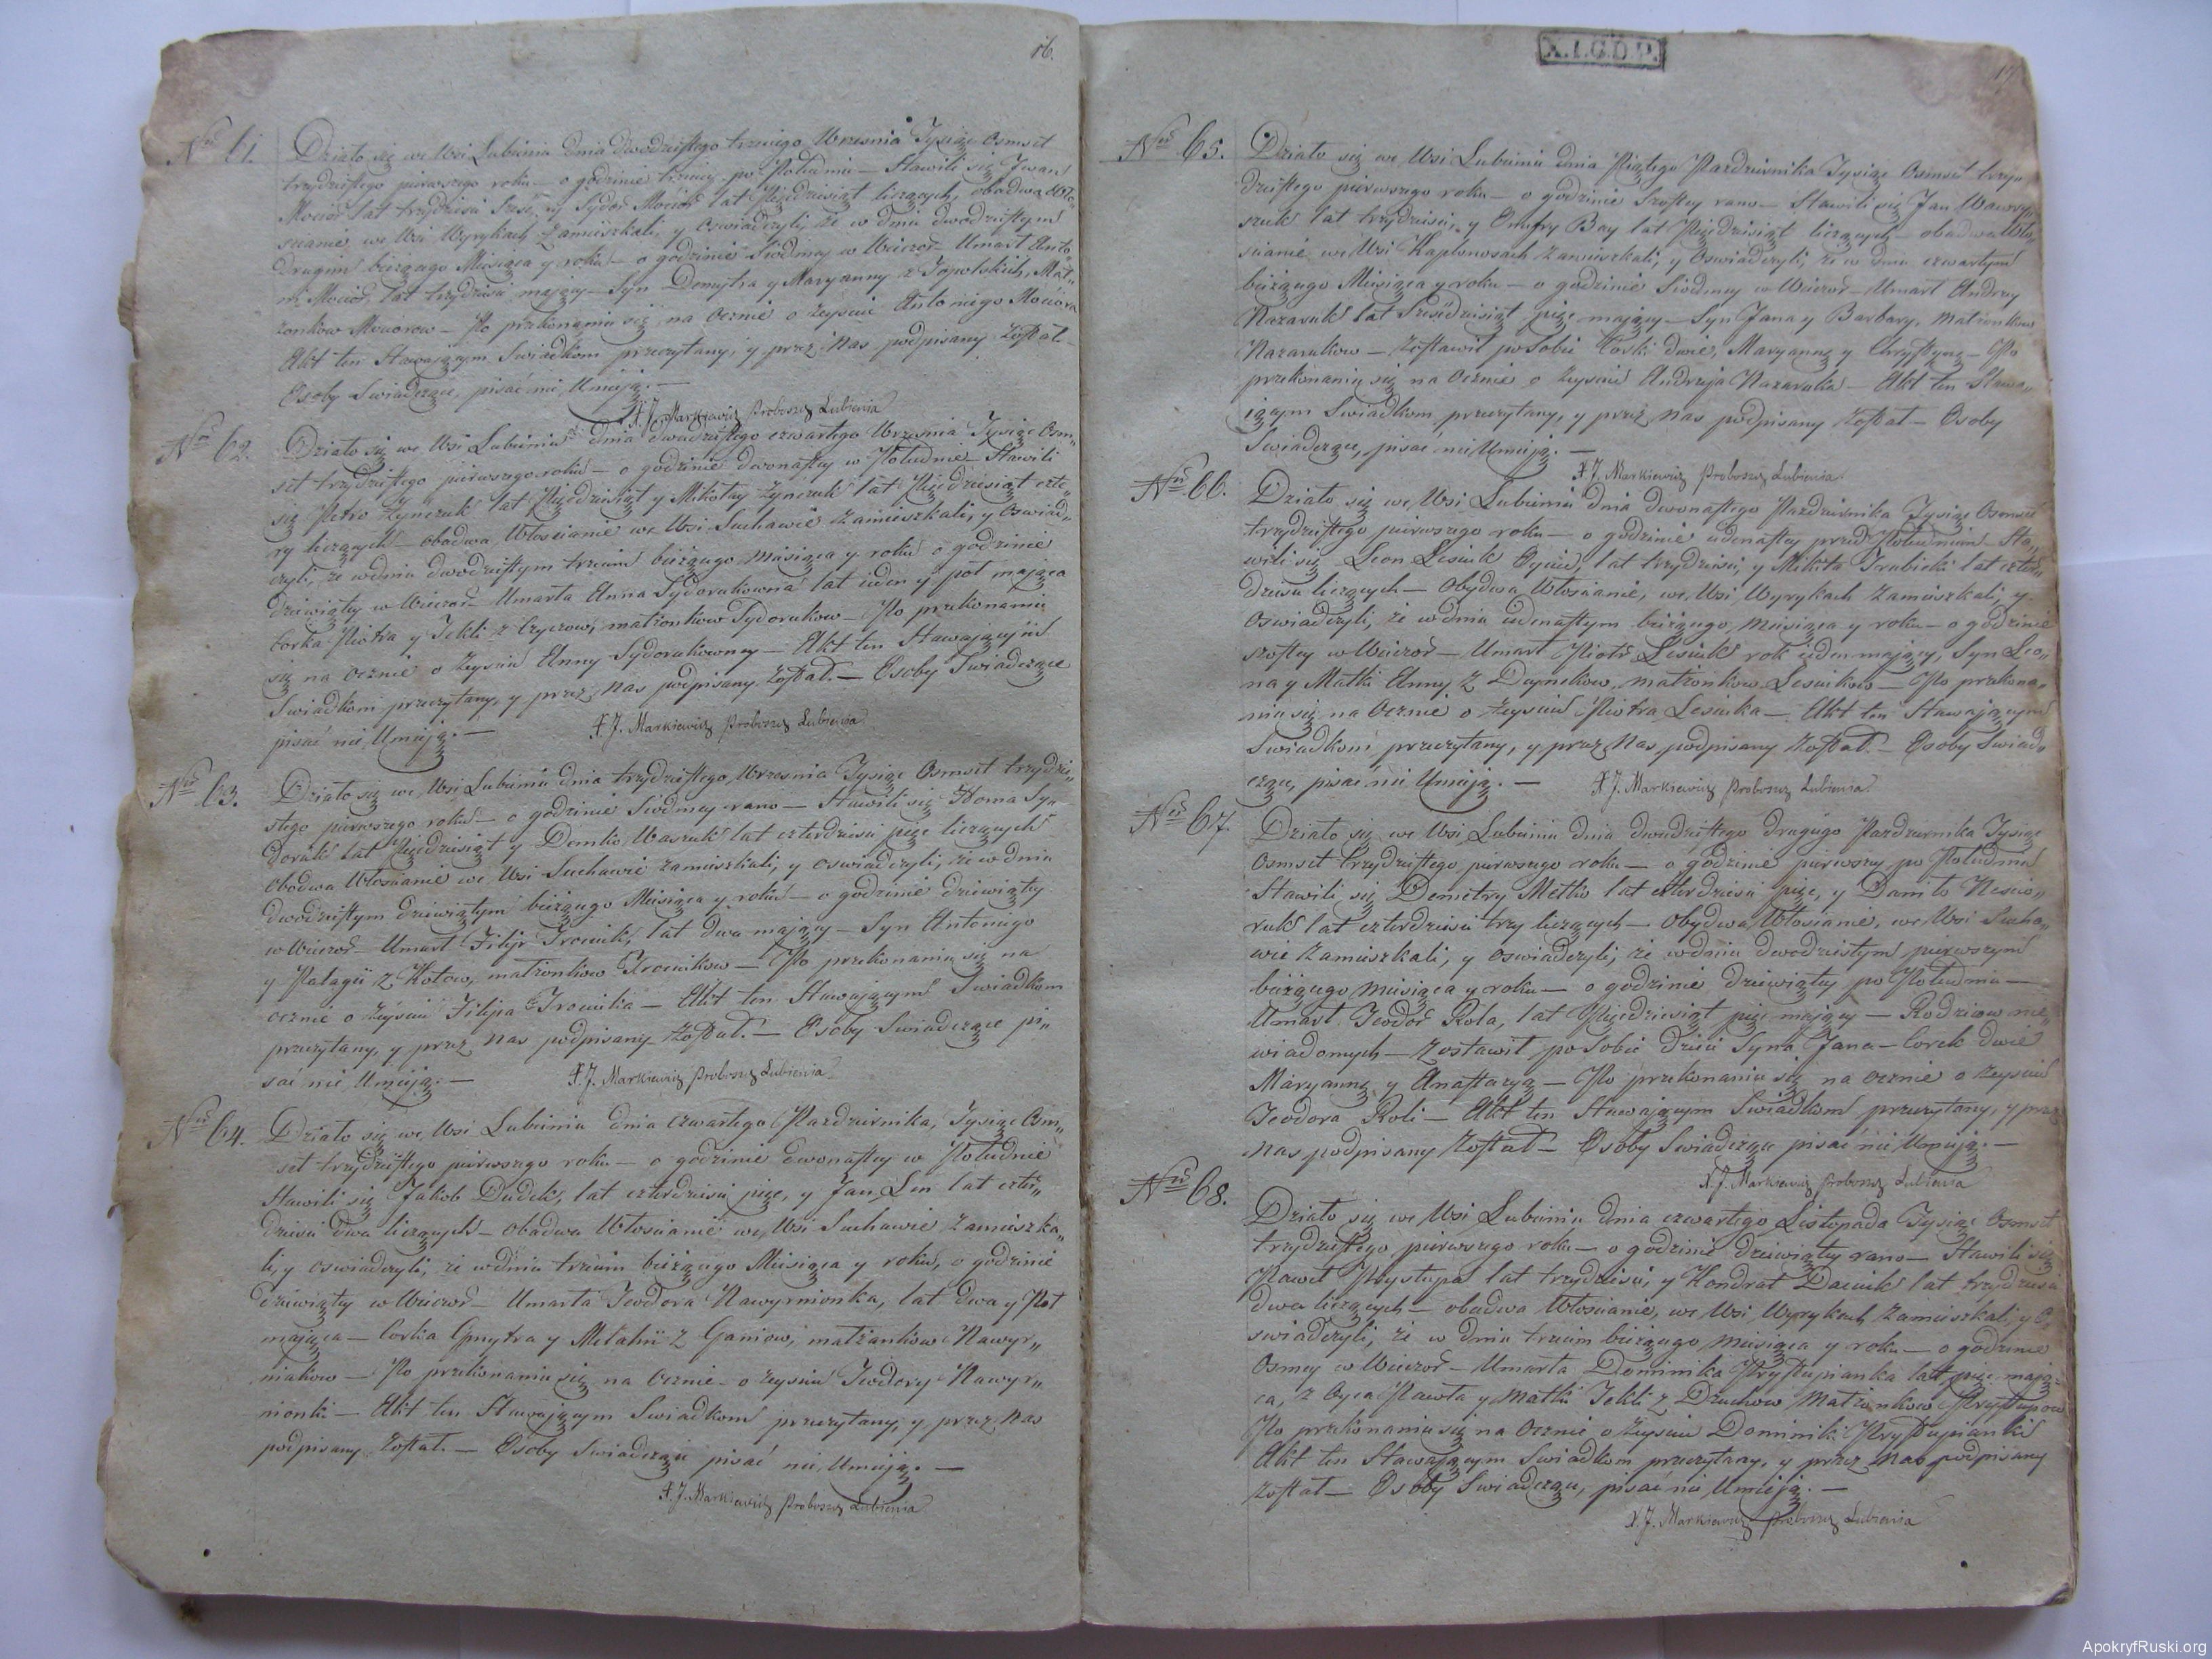 16.
Nro 61. Działo się we Wsi Lubieniu dnia dwudziestego trzeciego Wrzesnia Tysiąc Osmset
trzydziestego pierwszego roku — o godzinie trzeciej po Południu — Stawili się Jwan
Mocior lat trzydziesci szesc, y Sydor Mocior lat Pięcdziesiąt liczących, obadwa Wło„
scianie we Wsi Wyrykach zamieszkali, y Oswiadczyli, że w dniu dwudziestym
drugim bieżącego Miesiąca y roku — o godzinie siodmey w Wieczor — Umarł Anto„
ni Mocior, lat trzydziesci maiący — Syn Dmytra y Maryanny z Jopolskich, Mał„
żonkow Mociorow — Po przekonaniu się na Ocznie o Zeysciu Antoniego Mociora
Akt ten Stawaiącym Swiadkom przeczytany, y przez Nas podpisany Został —
Osoby Swiadczące, pisać nie Umieją. —
X. J. Markiewicz Proboszcz Lubienia
Nro 62. Działo się we Wsi Lubieniu dnia dwudziestego czwartego Wrzesnia Tysiąc Osm„
set trzydziestego pierwszego roku — o godzinie dwonastey w Południe — Stawili
się Petro Zynczuk lat Pięcdziesiąt y Mikołay Zynczuk lat Pięcdziesiąt czte„
ry liczących — obadwa Włoscianie we Wsi Suchawie zamieszkali, y Oswiad„
czyli, że w dniu dwudziestym trzecim bieżącego miesiąca y roku o godzinie
dziewiątey w Wieczor — Umarła Anna Sydorukowna lat ieden y poł maiąca
Corka Piotra y Tekli z małżonkow Sydorukow — Po przekonaniu
się na Ocznie o Zeysciu Anny Sydorukowney — Akt ten Stawaiącym
Swiadkom przeczytany, y przez Nas podpisany Został. — Osoby Swiadczące
pisać nie Umieją. —
X. J. Markiewicz Proboszcz Lubienia
Nro 63. Działo się we Wsi Lubieniu dnia trzydziestego Wrzesnia Tysiąc Osmset trzydzie„
stego pierwszego roku — o godzinie Siodmey rano — Stawili się Homa Sy„
doruk lat Pięcdziesiąt y Demko Waszuk lat czterdziesci pięc liczących
Obadwa Włoscianie we Wsi Suchawie zamieszkali, y oswiadczyli, że w dniu
dwudziestym dziewiątym bieżącego Miesiąca y roku — o godzinie dziewiątey
w Wieczor — Umarł Filip Trociuk, lat dwa maiący — Syn Antoniego
y Palagii z Kotow, małżonkow Trociukow — Po przekonaniu się na
ocznie o Zeysciu Filipa Trociuka — Akt ten Stawaiącym Swiadkom
przeczytany, y przez Nas podpisany Został. — Osoby Swiadczące pi„
sać nie Umieją. —
X. J. Markiewicz Proboszcz Lubienia
Nro 64. Działo się we Wsi Lubieniu dnia czwartego Pazdziernika, Tysiąc Osm„
set trzydziestego pierwszego roku — o godzinie dwonastey w Południe
Stawili się Jakob Dudek, lat czterdziesci pięc, y Jan Len lat czter„
dziesci dwa liczących — obadwa Włoscianie we Wsi Suchawie zamieszka„
li, y oswiadczyli, że w dniu trzecim bieżącego Miesiąca y roku, o godzinie
dziewiątey w Wieczor — Umarła Teodora Nawyrnionka, lat dwa y Poł
maiąca — Corka y Mełanii z Ganiow, małżonkow Nawyr„
niukow — Po przekonaniu się na Ocznie o Zeysciu Teodory Nawyr„
nionki — Akt ten Stawaiącym Swiadkom przeczytany, y przez Nas
podpisany Został. — Osoby Swiadczące pisać nie Umieją. —
X. J. Markiewicz Proboszcz Lubienia
X.I.G.D.P.
17.
Nro 65. Działo się we Wsi Lubieniu dnia Piątego Pazdziernika Tysiąc Osmset trzy„
dziestego pierwszego roku — o godzinie Szostey rano — Stawili się Jan Wawry„
szuk lat trzydziesci, y Onufry Bay lat Pięcdziesiąt liczących — obadwa Wło„
scianie we Wsi Kaplonosach zamieszkali, y Oswiadczyli, że w dniu czwartym
bieżącego Miesiąca y roku — o godzinie Siodmey w Wieczor — Umarł Andrzey
Nazaruk lat Szescdziesiąt pięc maiący — Syn Jana y Barbary, Małżonkow
Nazarukow — Zostawił po Sobie Corki dwie, Maryannę y Chrystynę — Po
przekonaniu się na Ocznie o Zeysciu Andrzeja Nazaruka — Akt ten Stawa„
iącym Swiadkom przeczytany, y przez Nas podpisany Został — Osoby
Swiadczące, pisać nie Umieją. —
X. J. Markiewicz Proboszcz Lubienia
Nro 66. Działo się we Wsi Lubieniu dnia dwonastego Pazdziernika Tysiąc Osmset
trzydziestego pierwszego roku — o godzinie iedenastey przed Południem — Sta„
wili się Leon Lesiuk Oyciec, lat trzydziesci, y Mikita Grabicki lat czter„
dziesci liczących — Obydwa Włoscianie, we Wsi Wyrykach zamieszkali, y
Oswiadczyli, że w dniu iedenastym bieżącego Miesiąca y roku — o godzinie
szostey w Wieczor — Umarł Piotr Lesiuk rok ieden maiący, Syn Leo„
na y Matki Anny z Daynekow, małżonkow Lesiukow — Po przekona„
niu się na Ocznie o Zeysciu Piotra Lesiuka — Akt ten Stawaiącym
Swiadkom przeczytany, y przez Nas podpisany Został. — Osoby Swiad„
czące, pisać nie Umieją. —
X. J. Markiewicz Proboszcz Lubienia
Nro 67. Działo się we Wsi Lubieniu dnia dwudziestego drugiego Pazdziernika Tysiąc
Osmset trzydziestego pierwszego roku — o godzinie pierwszey po Południu
Stawili się Demetry Metko lat czterdziesci pięc, y Daniło Nescio„
ruk lat czterdziesci trzy liczących — Obydwa Włoscianie, we Wsi Sucha„
wie zamieszkali, y oswiadczyli, że w dniu dwudziestym pierwszym
bieżącego miesiąca y roku — o godzinie dziewiątey po Południu —
Umarł Teodor Rola, lat Pięcdziesiąt pięc maiący — Rodzicow nie„
wiadomych — Zostawił po Sobie dzieci Syna Jana — Corek dwie
Maryannę y Anastazyą — Po przekonaniu się na ocznie o Zeysciu
Teodora Roli — Akt ten Stawaiącym Swiadkom przeczytany, y przez
Nas podpisany Został — Osoby Swiadczące pisać nie Umieją. —
X. J. Markiewicz Proboszcz Lubienia
Nro 68. Działo się we Wsi Lubieniu dnia czwartego Listopada Tysiąc Osmset
trzydziestego pierwszego roku — o godzinie dziewiątey rano — Stawili się
Paweł Prystupa lat trzydziesci, y Kondrat Daciuk lat trzydziesci
dwa liczących — obadwa Włoscianie, we Wsi Wyrykach zamieszkali, y O„
swiadczyli, że w dniu trzecim bieżącego miesiąca y roku — o godzinie
Osmey w Wieczor — Umarła Dominika Prystupianka lat pięc maią„
ca, z Oyca Pawła y Matki Tekli z Dziuchow Małżonkow Prystupow
Po przekonaniu się na Ocznie o Zeysciu Dominiki Prystupianki
Akt ten Stawaiącym Swiadkom przeczytany, y przez Nas podpisany
Został — Osoby Swiadczące, pisać nie Umieją. —
X. J. Markiewicz Proboszcz Lubienia
ApokryfRuski.org